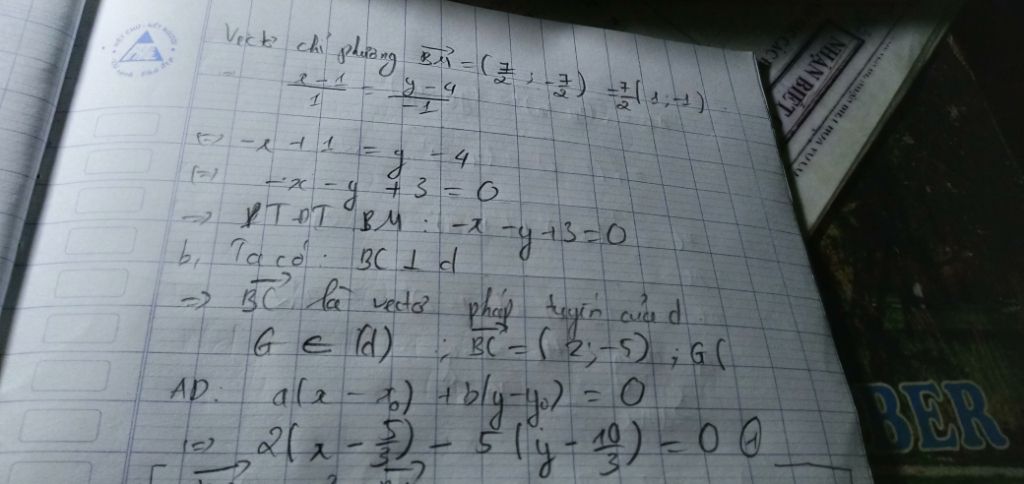 Vectơ chỉ phương BM→ = (7/2 ; -7/2) = 7/2 (1 ; -1)
(x-1)/1 = (y-4)/-1
<=> -x + 1 = y - 4
<=> -x - y + 3 = 0
=> PTĐT BM : -x - y + 3 = 0
b, Ta có : BC ⊥ d
=> BC→ là vectơ pháp tuyến của d
G ∈ (d) ; BC→ = (2; -5) ; G(
AD: a(x - x₀) + b(y - y₀) = 0
<=> 2(x - 5/3) - 5(y - 10/3) = 0
NHẬN BIẾT
BER